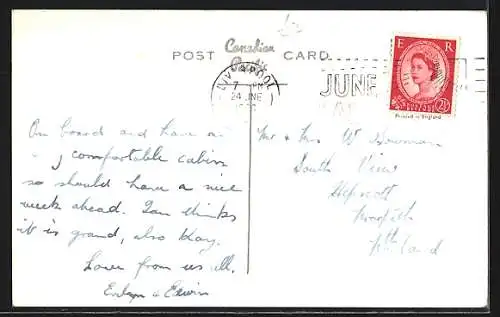 POST CARD
Canadian
Pacific
LIVERPOOL
7 PM
24 JNE
JUNE
E R
POSTAGE
2½
Printed in England
On board and have a
comfortable cabin
so should have a nice
week ahead. Ian thinks
it is grand, also Kay.
Love from us all.
Evelyn & Edwin
Mr & Mrs W Bowman
South View
Hepscott
Morpeth
N'th'land